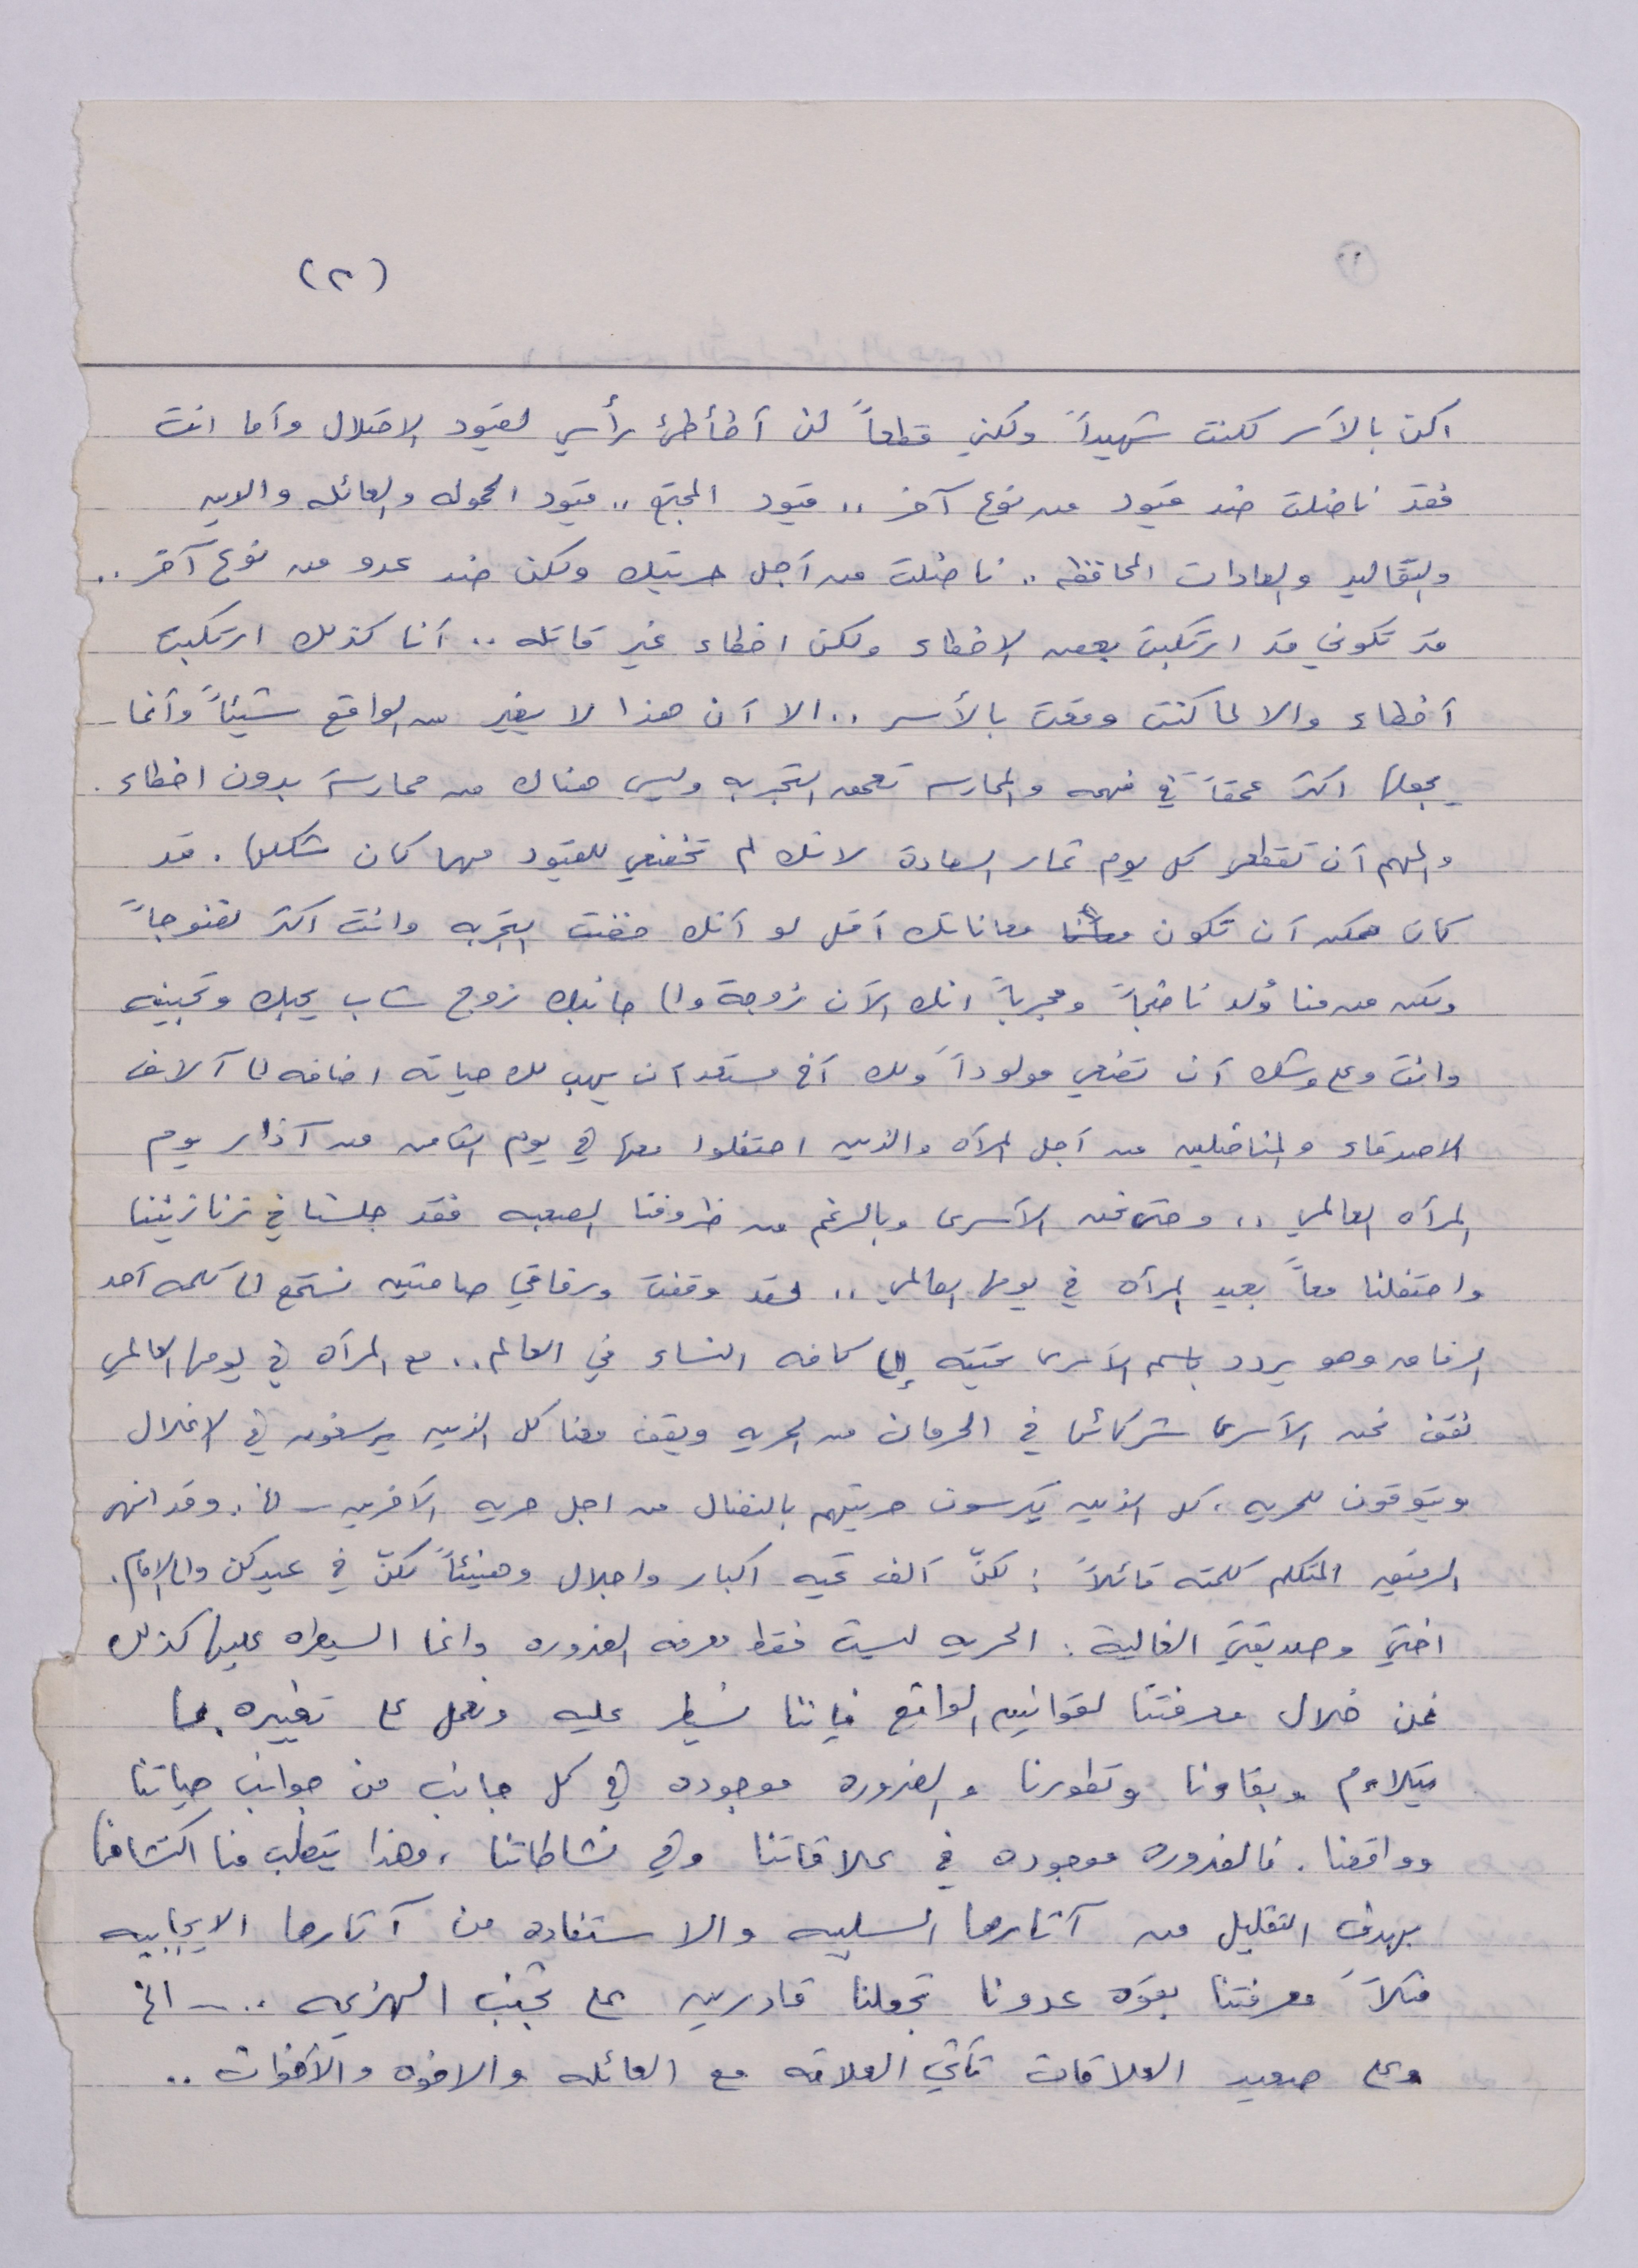 (٢)
اكن بالأسر لكنت شهيداً ولكني قطعاً لن أطأطئ رأسي لقيود الاحتلال وأما انت
فقد ناضلت ضد قيود من نوع آخر .. قيود المجتمع .. قيود الحموله والعائله والدين
والتقاليد والعادات المحافظه .. ناضلت من أجل حريتك ولكن ضد عدو من نوع آخر ..
قد تكوني قد ارتكبت بعض الاخطاء ولكن اخطاء غير قاتله .. أنا كذلك ارتكبت
أخطاء والا لما كنت وقعت بالأسر .. الا أن هذا لا يغير من الواقع شيئاً وأنما
يجعلها اكثر عمقاً في فهمه والممارسه تعمق التجربه وليس هناك من ممارسة بدون اخطاء .
والمهم أن تقطفي كل يوم ثمار السعادة لانك لم تخضعي للقيود مهما كان شكلها . قد
كان ممكن أن تكون معاناتك أقل لو أنك خضت التجربه وانت اكثر نضوجاً
ولكن من منا وُلد ناضجاً ومجرباً انك الآن زوجة والى جانبك زوج شاب يحبك وتحبينه
وانت وعلى وشك أن تضعي مولوداً ولك أخ مستعد أن يهب لك حياته اضافه الى آلاف
الاصدقاء والمناضلين من أجل المرأه والذين احتفلوا معها في يوم الثامن من آذار يوم
المرأه العالمي .. وحتى نحن الأسرى وبالرغم من ظروفنا الصعبه فقد جلسنا في زنازيننا
واحتفلنا معاً بعيد المرأه في يومها العالمي .. لقد وقفت ورفاقي صامتين نستمع الى كلمه أحد
الرفاق وهو يردد باسم الأسرى تحيته إلى كافه النساء في العالم .. مع المرأه في يومها العالمي
نقف نحن الأسرى شركائها في الحرمان من الحريه ويقف معنا كل الذين يرسفون في الاغلال
ويتوقون للحريه ، كل الذين يكرسون حريتهم بالنضال من اجل حريه الآخرين ـ الخ . وقد انهى
الرفيق المتكلم كلمته قائلاً : لكنّ ألف تحيه اكبار واجلال وهنيئاً لكنّ في عيدكن والى الامام .
اختي وصديقتي الغالية : الحريه ليست فقط معرفه الضروره وانما السيطره عليها كذلك
فمن خلال معرفتنا لقوانين الواقع فإننا نسيطر عليه ونعمل على تغييره بما
يتلاءم وبقاءنا وتطورنا والضروره موجوده في كل جانب من جوانب حياتنا
وواقعنا . فالضروره موجوده في علاقاتنا وفي نشاطاتنا ، وهذا يتطلب منا اكتشافها
بهدف التقليل من آثارها السلبيه والاستفاده من آثارها الايجابيه
فمثلاً معرفتنا بقوه عدونا تجعلنا قادرين على تجنب الهزيمه .. ـ الخ
وعلى صعيد العلاقات تأتي العلاقه مع العائله والاخوه والأخوات ..